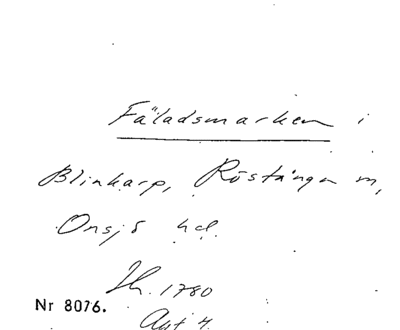 Fäladsmarken i
Blinkarp, Röstånga m,
Onsjö hd.
Th. 1780
Nr 8076.
Avt 4.